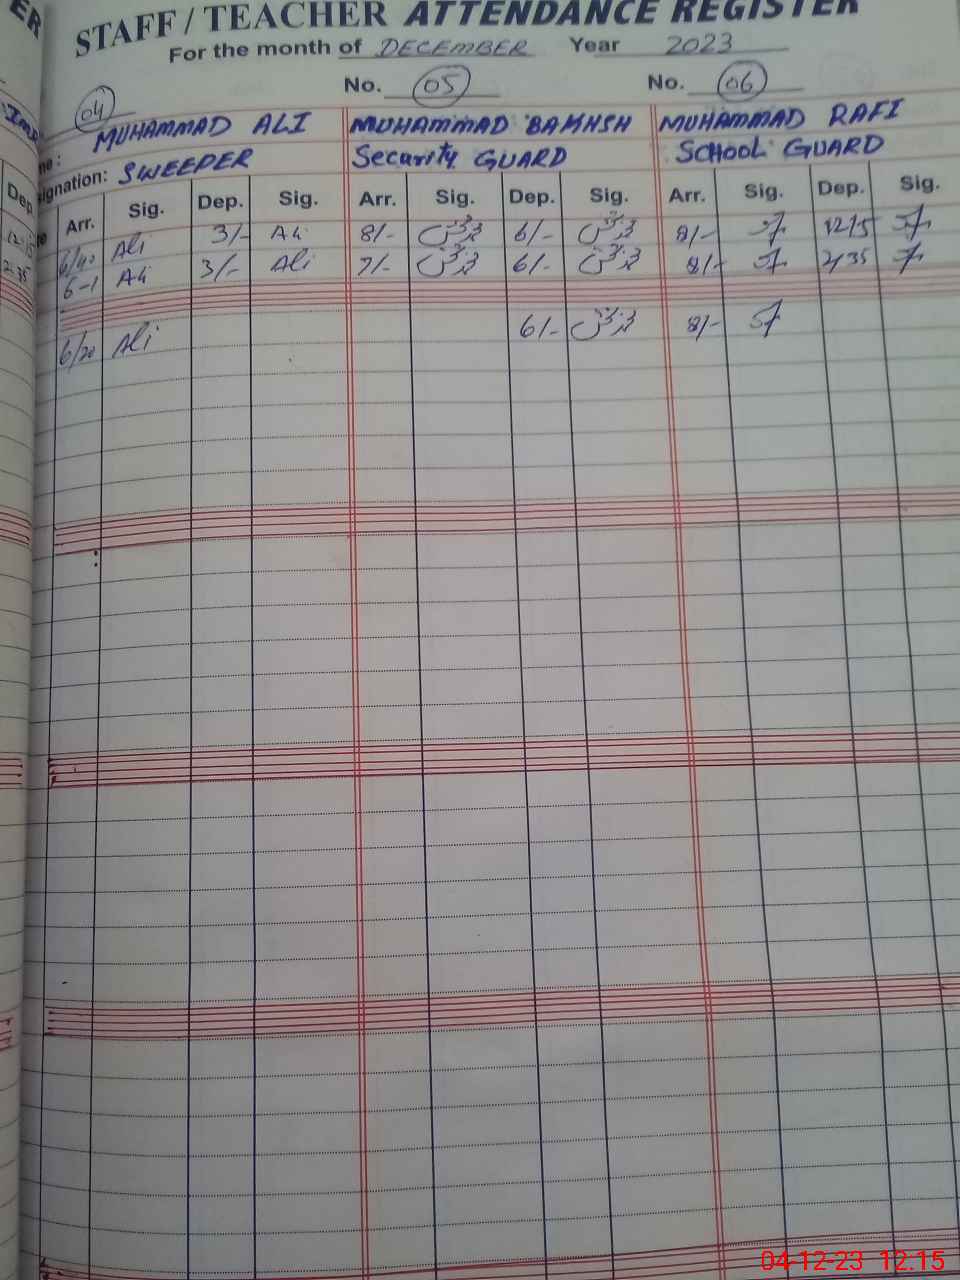 ER
STAFF / TEACHER ATTENDANCE REGISTER
For the month of DECEMBER Year 2023
04 No. 05 No. 06
MUHAMMAD ALI MUHAMMAD BAKHSH MUHAMMAD RAFI
signation: SWEEPER Security GUARD SCHOOL GUARD
Dep. Arr. Sig. Dep. Sig. Arr. Sig. Dep. Sig. Arr. Sig. Dep. Sig.
6/40 Ali 3/- Ali 8/- 6/- 8/- 12/15
2-35 6-1 Ali 3/- Ali 7/- 6/- 8/- 2/35
6/20 Ali 6/- 8/-
04-12-23 12.15